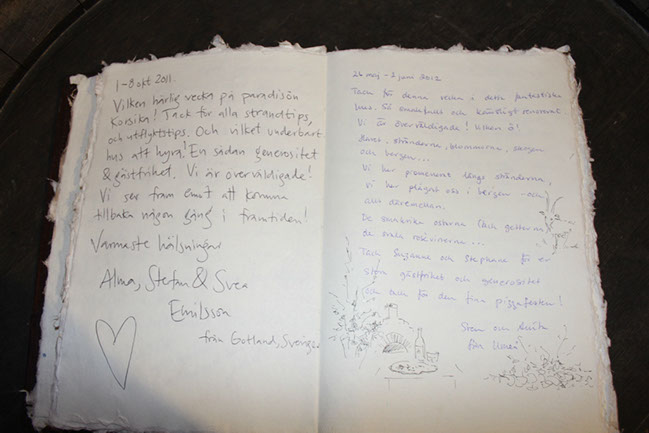 1-8 okt 2011.
Vilken härlig vecka på paradisön
Korsika! Tack för alla strandtips,
och utflyktstips. Och vilket underbart
hus att hyra! En sådan generositet
& gästfrihet. Vi är överväldigade!
Vi ser fram emot att komma
tillbaka någon gång i framtiden!
Varmaste hälsningar
Alma, Stefan & Svea
Emilsson
från Gotland, Sverige
26 maj - 2 juni 2012
Tack för denna vecka i detta fantastiska
hus. Så smakfullt och konstnärligt renoverat
Vi är överväldigade! Vilken ö!
Havet, stränderna, blommorna, skogen
och bergen...
Vi har promenerat längs stränderna,
vi har plågat oss i bergen - och
allt däremellan.
De smakrika ostarna (luch getterna
de svala rosévinerna...
Tack Susanne och Stephane för er
stora gästfrihet och generositet
och tack för den fina pizzafesten!
Sten och
från